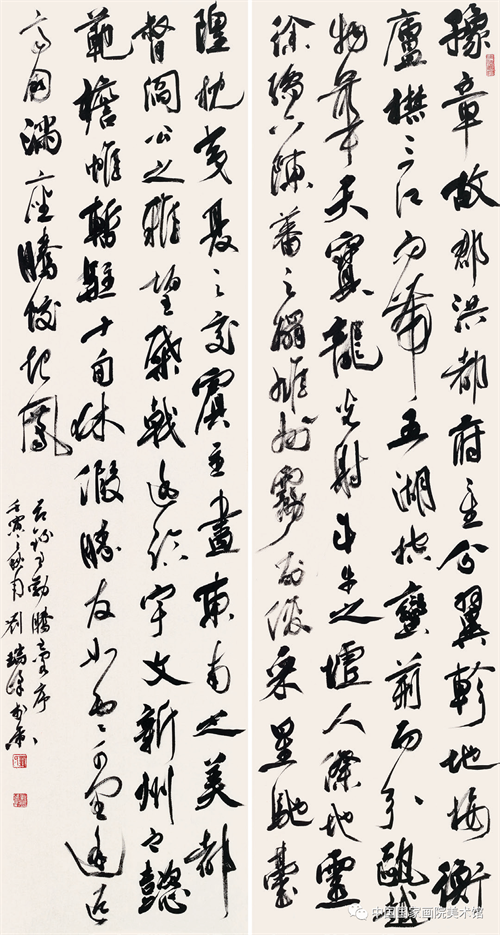 豫章故郡洪都府星分翼軫地接衡
廬襟三江而帶五湖控蠻荊而引甌越
物華天寶龍光射牛斗之墟人傑地靈
徐孺下陳蕃之榻雄州霧列俊采星馳臺
隍枕夷夏之交賓主盡東南之美都
督閻公之雅望棨戟遙臨宇文新州之懿
範襜帷暫駐十旬休假勝友如雲千里逢迎
高朋滿座騰蛟起鳳
王勃滕王閣序
壬寅之秋月劉瑞
中国国家画院美术馆